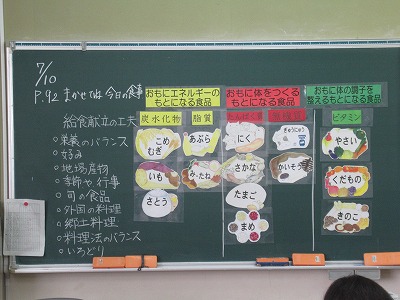 7/10
P.92 まかせてね 今日の食事
給食献立の工夫
○栄養のバランス
○好み
○地場産物
○季節や行事
○旬の食品
○外国の料理
○郷土料理
○料理法のバランス
○いろどり
おもにエネルギーの
もとになる食品
炭水化物
脂質
こめ
むぎ
いも
さとう
あぶら
み・たね
おもに体をつくる
もとになる食品
たんぱく質
無機質
にく
さかな
たまご
まめ
ぎゅうにゅう
かいそう
おもに体の調子を
整えるもとになる食品
ビタミン
やさい
くだもの
きのこ